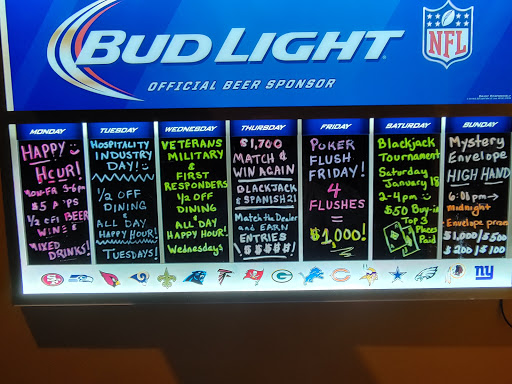 BUD LIGHT
OFFICIAL BEER SPONSOR
NFL
MONDAY
HAPPY
HOUR!
MON-FRI 3-6pm
$5 APPS
1/2 OFF BEER
WINE &
MIXED
DRINKS!
TUESDAY
HOSPITALITY
INDUSTRY
DAY!
1/2 OFF
DINING
&
ALL DAY
HAPPY HOUR!
TUESDAYS!
WEDNESDAY
VETERANS
MILITARY
&
FIRST
RESPONDERS
1/2 OFF
DINING
&
ALL DAY
HAPPY HOUR!
Wednesdays
THURSDAY
$1,700
MATCH &
WIN AGAIN
BLACKJACK
& SPANISH 21
Match the Dealer
and EARN
ENTRIES
\$$$$$!
FRIDAY
POKER
FLUSH
FRIDAY!
4
FLUSHES
=
$1,000!
SATURDAY
Blackjack
Tournament
Saturday
January 18
2-4pm
$50 Buy-in
Top 3
Places
Paid
SUNDAY
Mystery
Envelope
HIGH HAND
6:01pm →
midnight
Envelope prizes
$1,000/$500
$200/$100
SF
G
C
ny